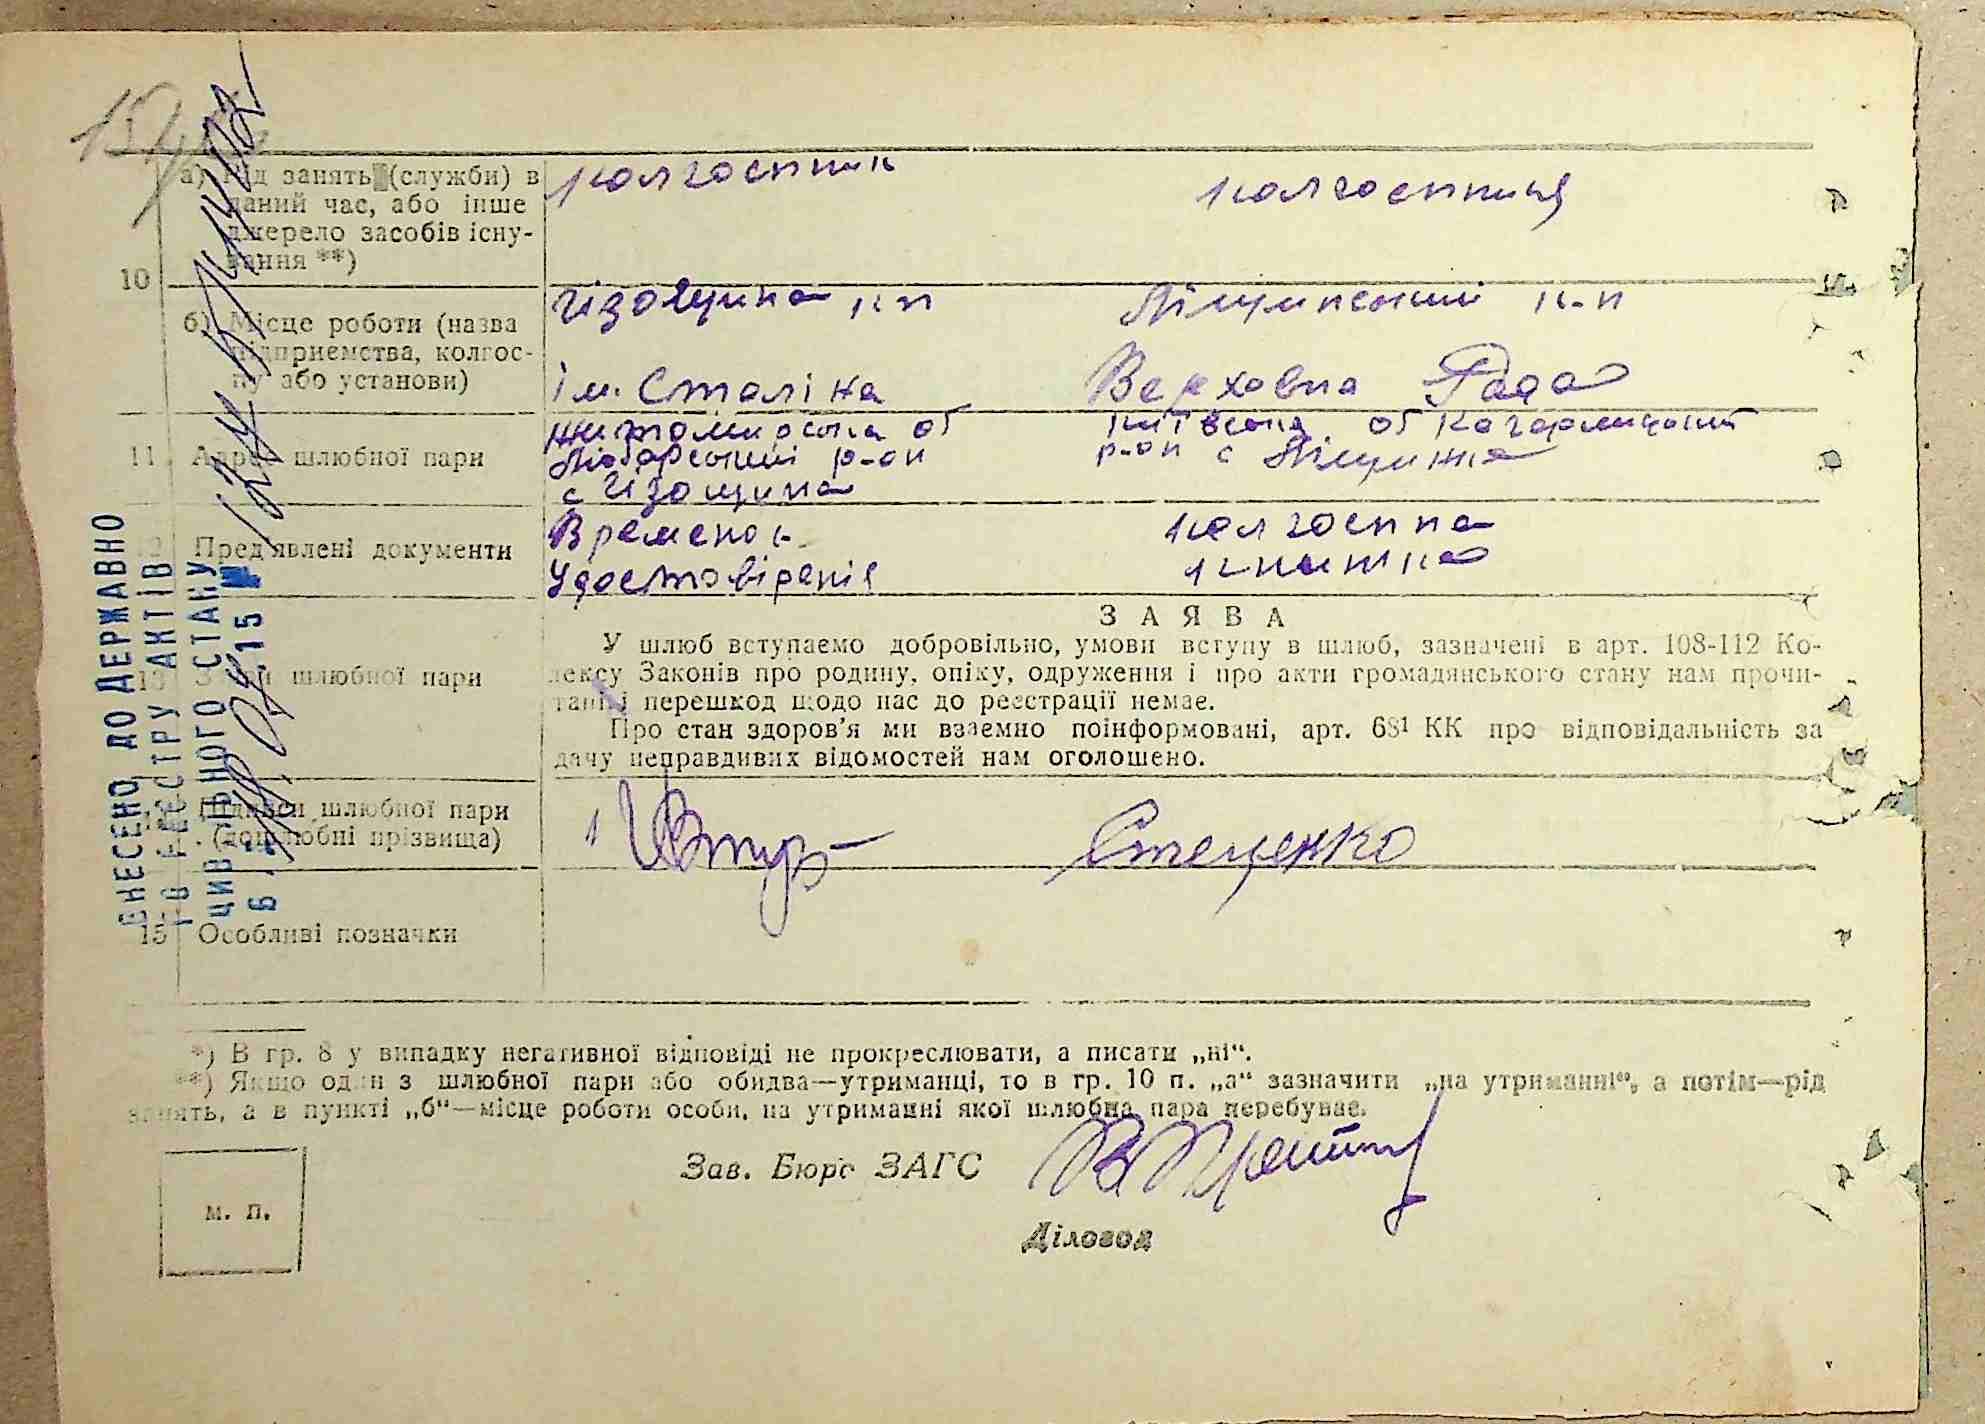 а) Рід занять (служби) в колгоспник колгоспниця
даний час, або інше
джерело засобів існу-
вання **)
10
б) Місце роботи (назва Гізовщина к-п Ліщинський к-п
підприємства, колгос-
пу або установи) ім. Сталіна Верховна Рада
11 Адрес шлюбної пари Житомирська об Київська об Кагарлицький
Любарський р-он р-он с Ліщинка
с Гізовщина
12 Пред'явлені документи Временоє колгоспна
Удостовіреніє книжка
ЗАЯВА
У шлюб вступаємо добровільно, умови вступу в шлюб, зазначені в арт. 108-112 Ко-
13 Заяви шлюбної пари дексу Законів про родину, опіку, одруження і про акти громадянського стану нам прочи-
тані і перешкод щодо нас до реєстрації немає.
Про стан здоров'я ми взаємно поінформовані, арт. 68¹ КК про відповідальність за
дачу неправдивих відомостей нам оголошено.
14 Підписи шлюбної пари
(дошлюбні прізвища) Стеценко
15 Особливі позначки
*) В гр. 8 у випадку негативної відповіді не прокреслювати, а писати „ні“.
**) Якщо один з шлюбної пари або обидва—утриманці, то в гр. 10 п. „а“ зазначити „на утриманні“, а потім—рід
занять, а в пункті „б“—місце роботи особи, на утриманні якої шлюбна пара перебуває.
Зав. Бюро ЗАГС
м. п.
Діловод
ВНЕСЕНО ДО ДЕРЖАВНО
ГО РЕЄСТРУ АКТІВ
ЦИВІЛЬНОГО СТАНУ